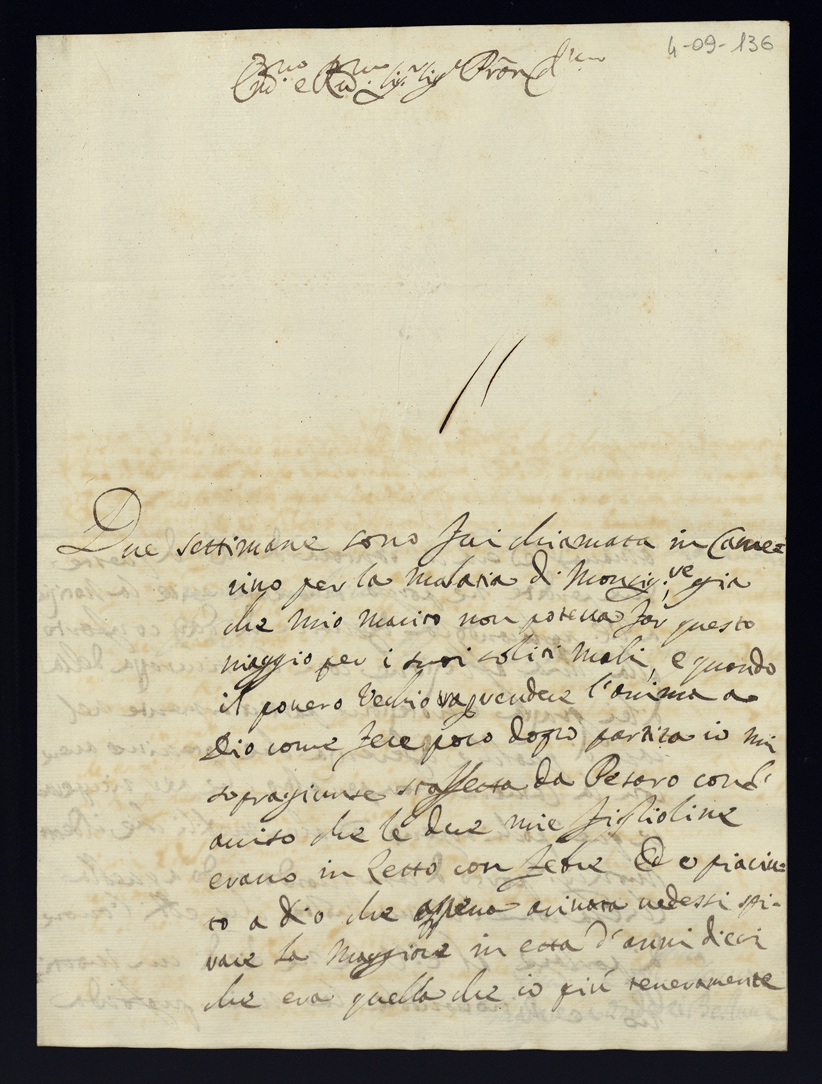 4-09-136
Em.mo e Rev.mo Sig.r Sig.r Pron C.mo
Due settimane sono fui chiamata in Came=
rino per la malatia di Monsig.re gia
che mio marito non poteva far questo
viaggio per i suoi soliti mali, e quando
il povero Vechio rendere l'anima a
Dio come fece poco dopo partita io mi
sopragiunse staffetta da Pesaro con l'
aviso che le due mie figlioline
erano in letto con febre Ed e piaciu=
to a Dio che appena arivata vedessi spi-
rare la Maggiore in etta d'anni dieci
che era quella che io più teneramente